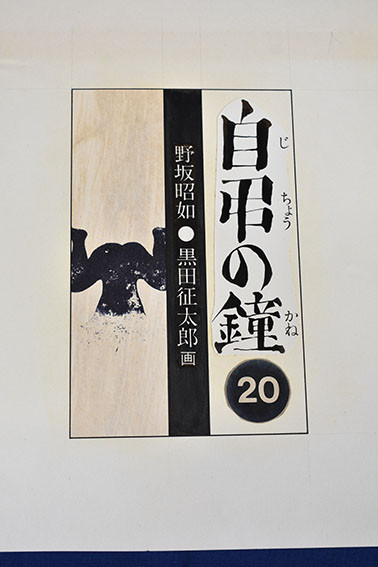 自弔の鐘
じ
ちょう
かね
20
野坂昭如●黒田征太郎画